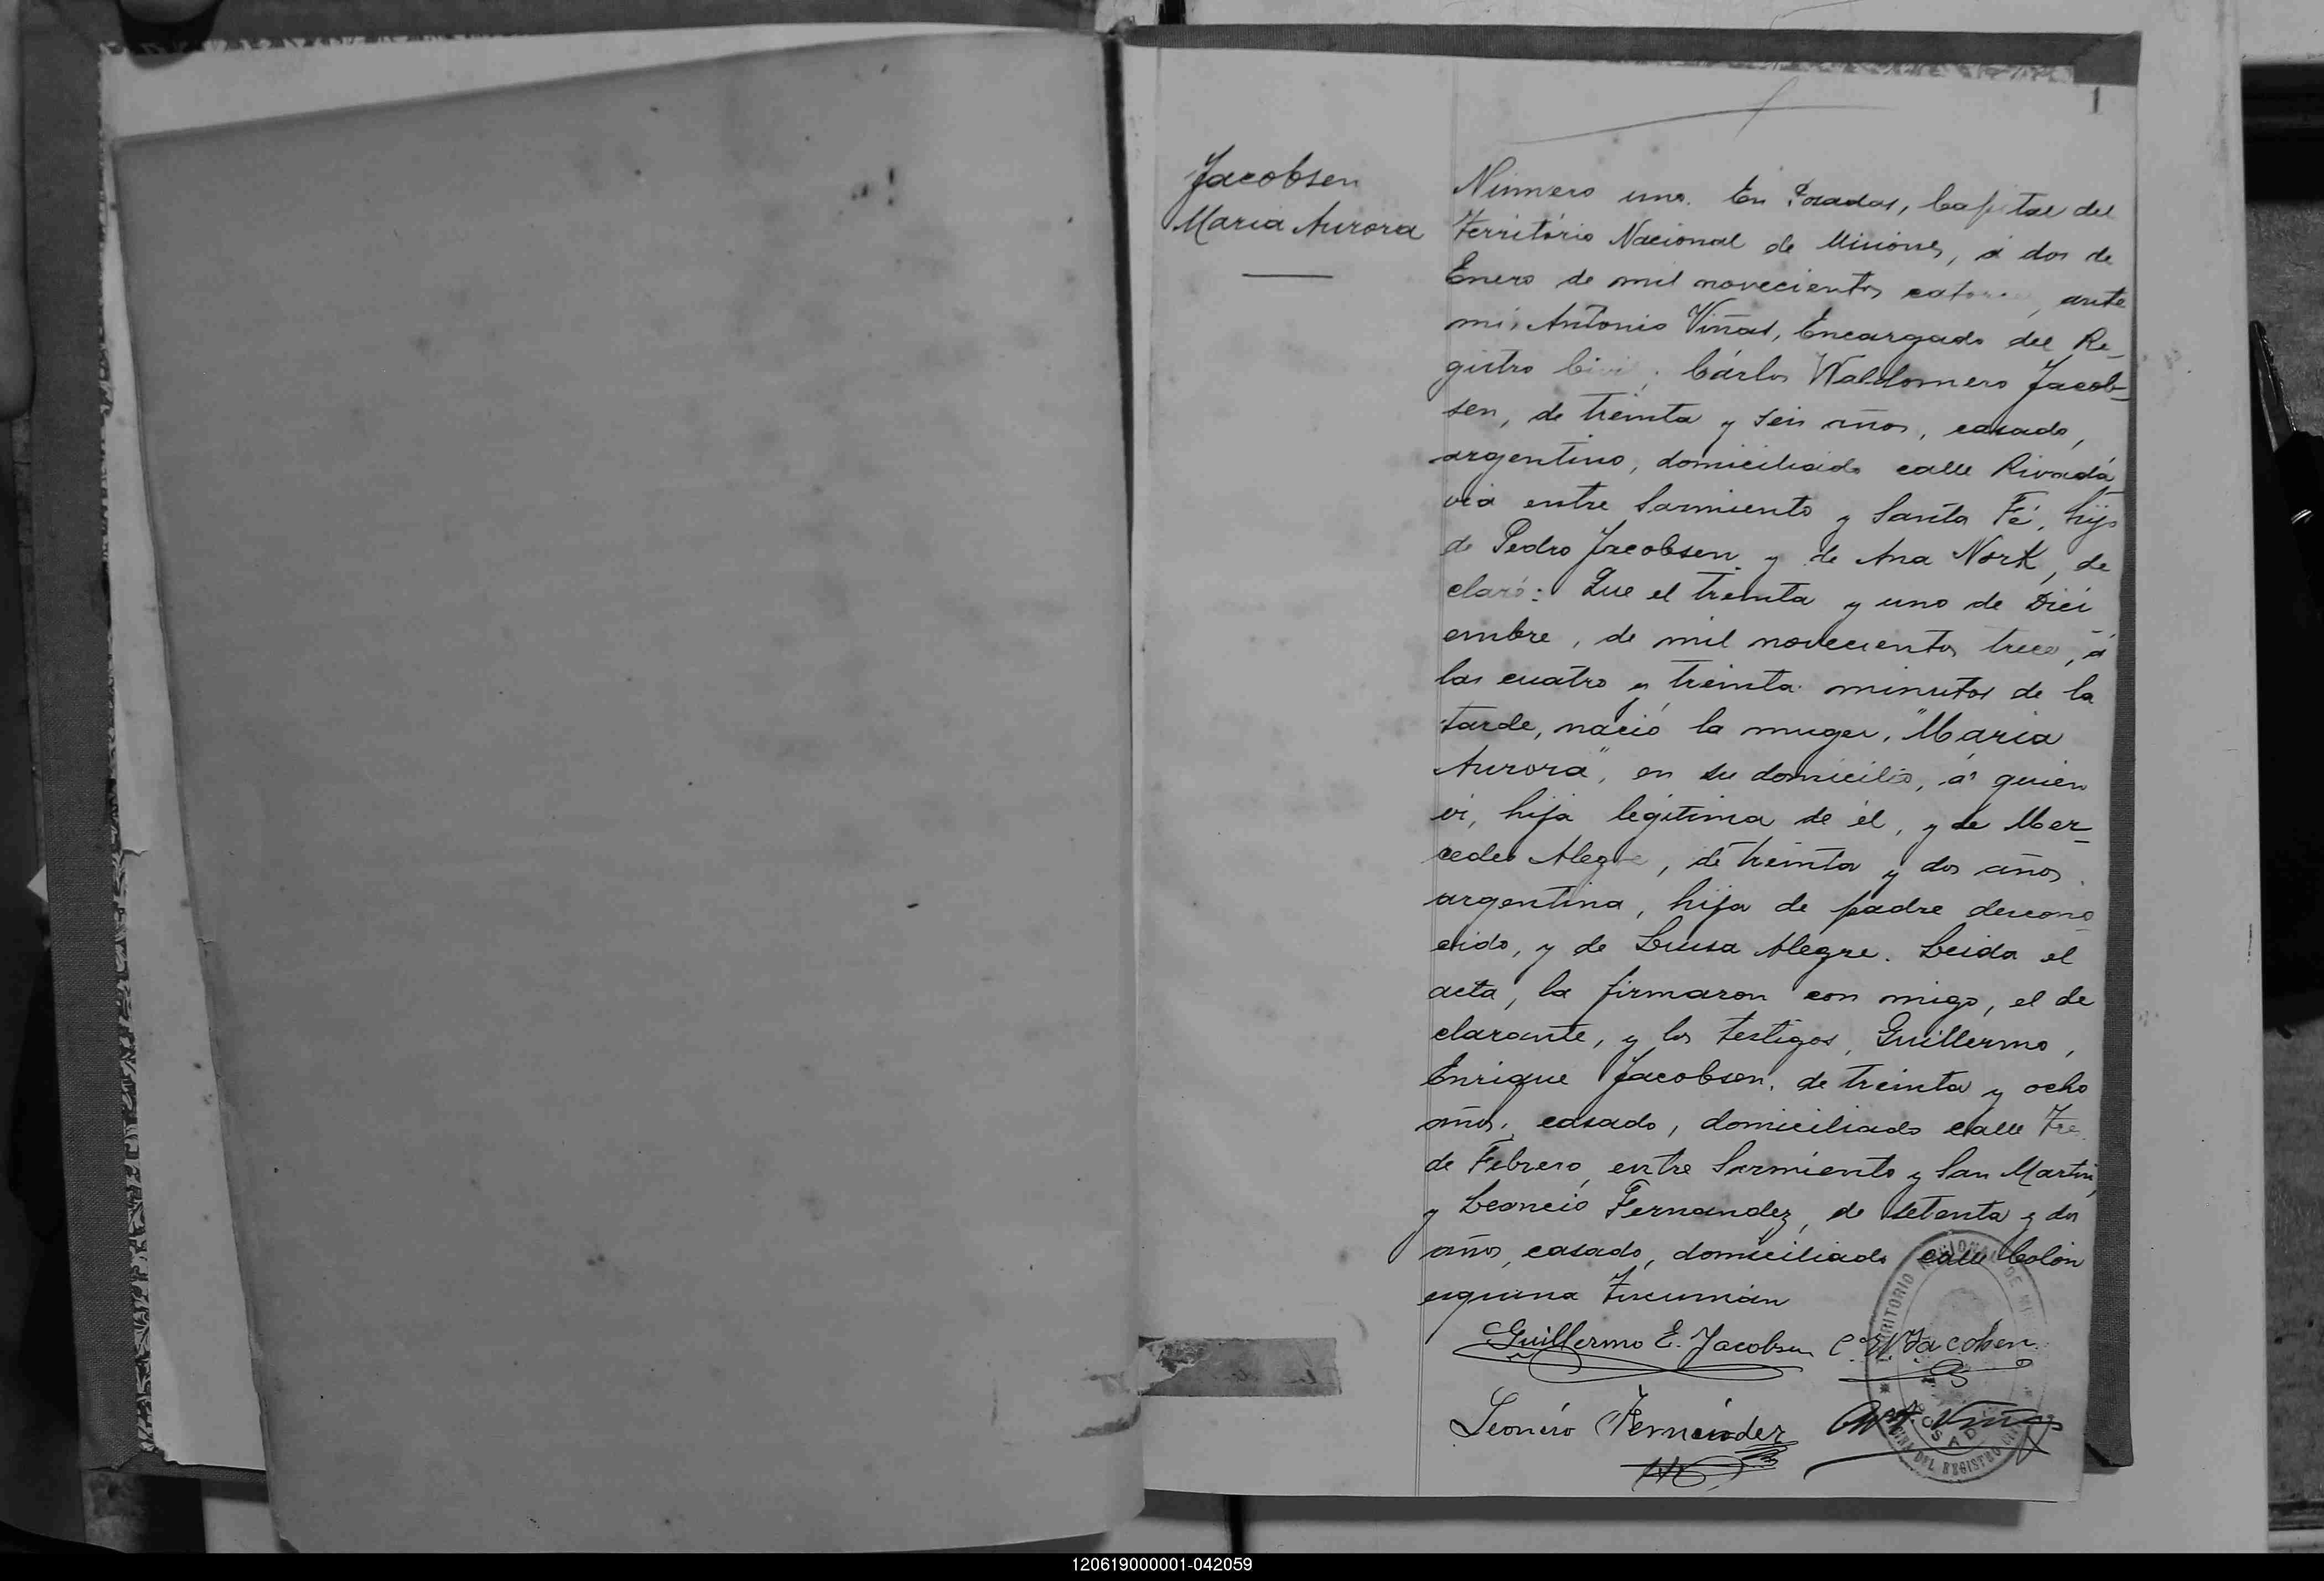 1
Jacobsen
Maria Aurora
Número uno. En Posadas, Capital del
Território Nacional de Misiones, á dos de
Enero de mil novecientos catorce, ante
mi, Antonio Viñas, Encargado del Re-
gistro Civil, Cárlos Waldomero Jacob-
sen, de treinta y seis años, casado,
argentino, domiciliado calle Rivada
via entre Sarmiento y Santa Fé, hijo
de Pedro Jacobsen y de Ana Nork, de
claró: Que el treinta y uno de Dici
embre, de mil novecientos trece, á
las cuatro y treinta minutos de la
tarde, nació la muger, "Maria
Aurora", en su domicilio, á quien
vi, hija legitima de él, y de Mer-
cedes Alegre, de treinta y dos años
argentina, hija de padre descono
cido, y de Luisa Alegre. Leida el
acta, la firmaron con migo, el de
clarante, y los testigos, Guillermo,
Enrique Jacobsen, de treinta y ocho
años, casado, domiciliado calle Tres
de Febrero, entre Sarmiento y San Martin,
y Leoncio Fernandez, de setenta y dos
años, casado, domiciliado calle Colón
esquina Tucumán
Guillermo E. Jacobsen C. W. Jacobsen
Leoncio Fernández Ant. Viñas
TERRITORIO NACIONAL DE
POSADAS
DEL REGISTRO
120619000001-042059